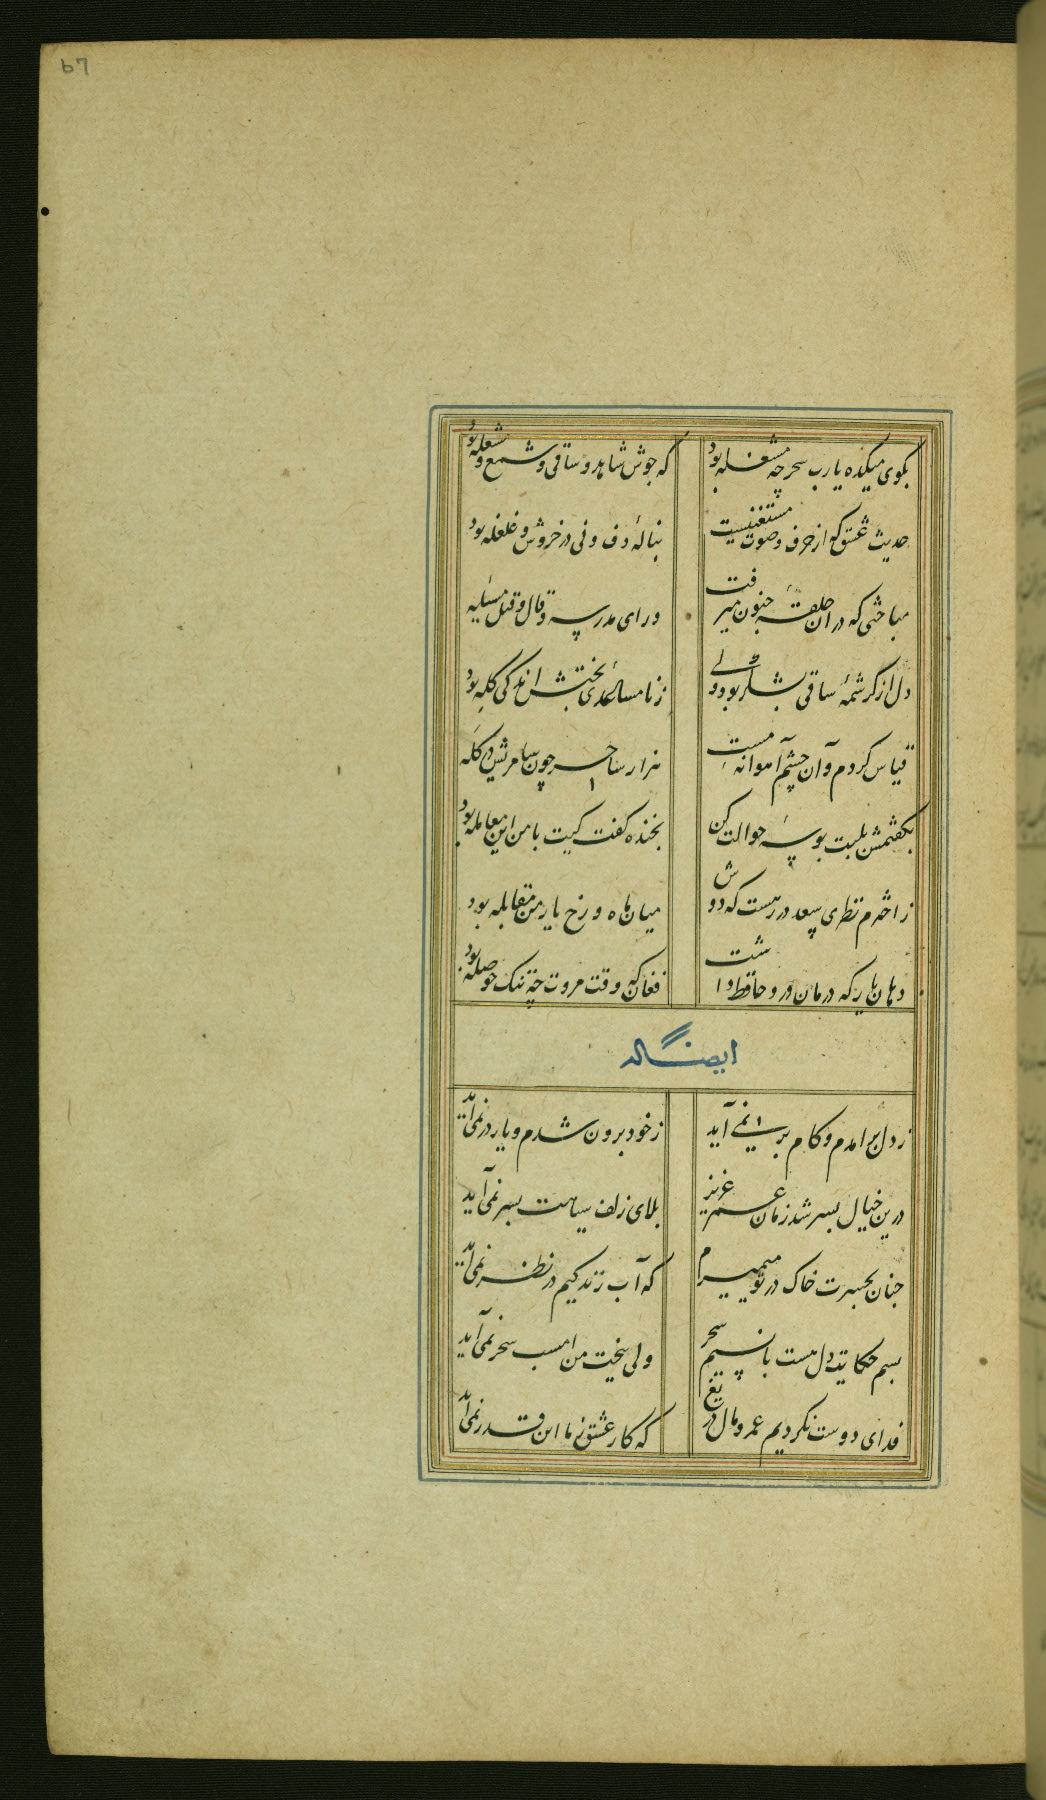 67
بکوی میکده یارب سحر چه مشغله بود
که جوش شاهد و ساقی و شمع و مشعله بود
حدیث عشق که از حرف و صوت مستغنیست
بنالهٔ دف و نی در خروش و غلغله بود
مباحثی که در ان حلقهٔ جنون میرفت
ورای مدرسه و قال و قیل مسئله
دل از کرشمهٔ ساقی بشکر بود ولی
زنامساعدی بختش اندکی کله بود
قیاس کردم و آن چشم آهوانه مست
هزار ساحر چون سامریش در کله
بکفتمش بلبت بوسهٔ حوالت کن
بخنده کفت کیت با من این معامله بود
زاخترم نظری سعد در رهست که دوش
میان ماه و رخ یار من مقابله بود
دهان یار که درمان درد حافظ داشت
فغان که وقت مروت چه تنک حوصله بود
ایضا له
ز دل برامدم و کام بر نمی آید
ز خود برون شدم و یار در نمی آید
درین خیال بسر شد زمان عمر عزیز
بلای زلف سیاهت بسر نمی آید
چنان بحسرت خاک در تو میمیرم
که آب زندکیم در نظر نمی آید
بسم حکایت دل هست با نسیم سحر
ولی ببخت من امسب سحر نمی آید
فدای دوست نکردیم عمر و مال دریغ
که کار عشق ز ما این قدر نمی آید